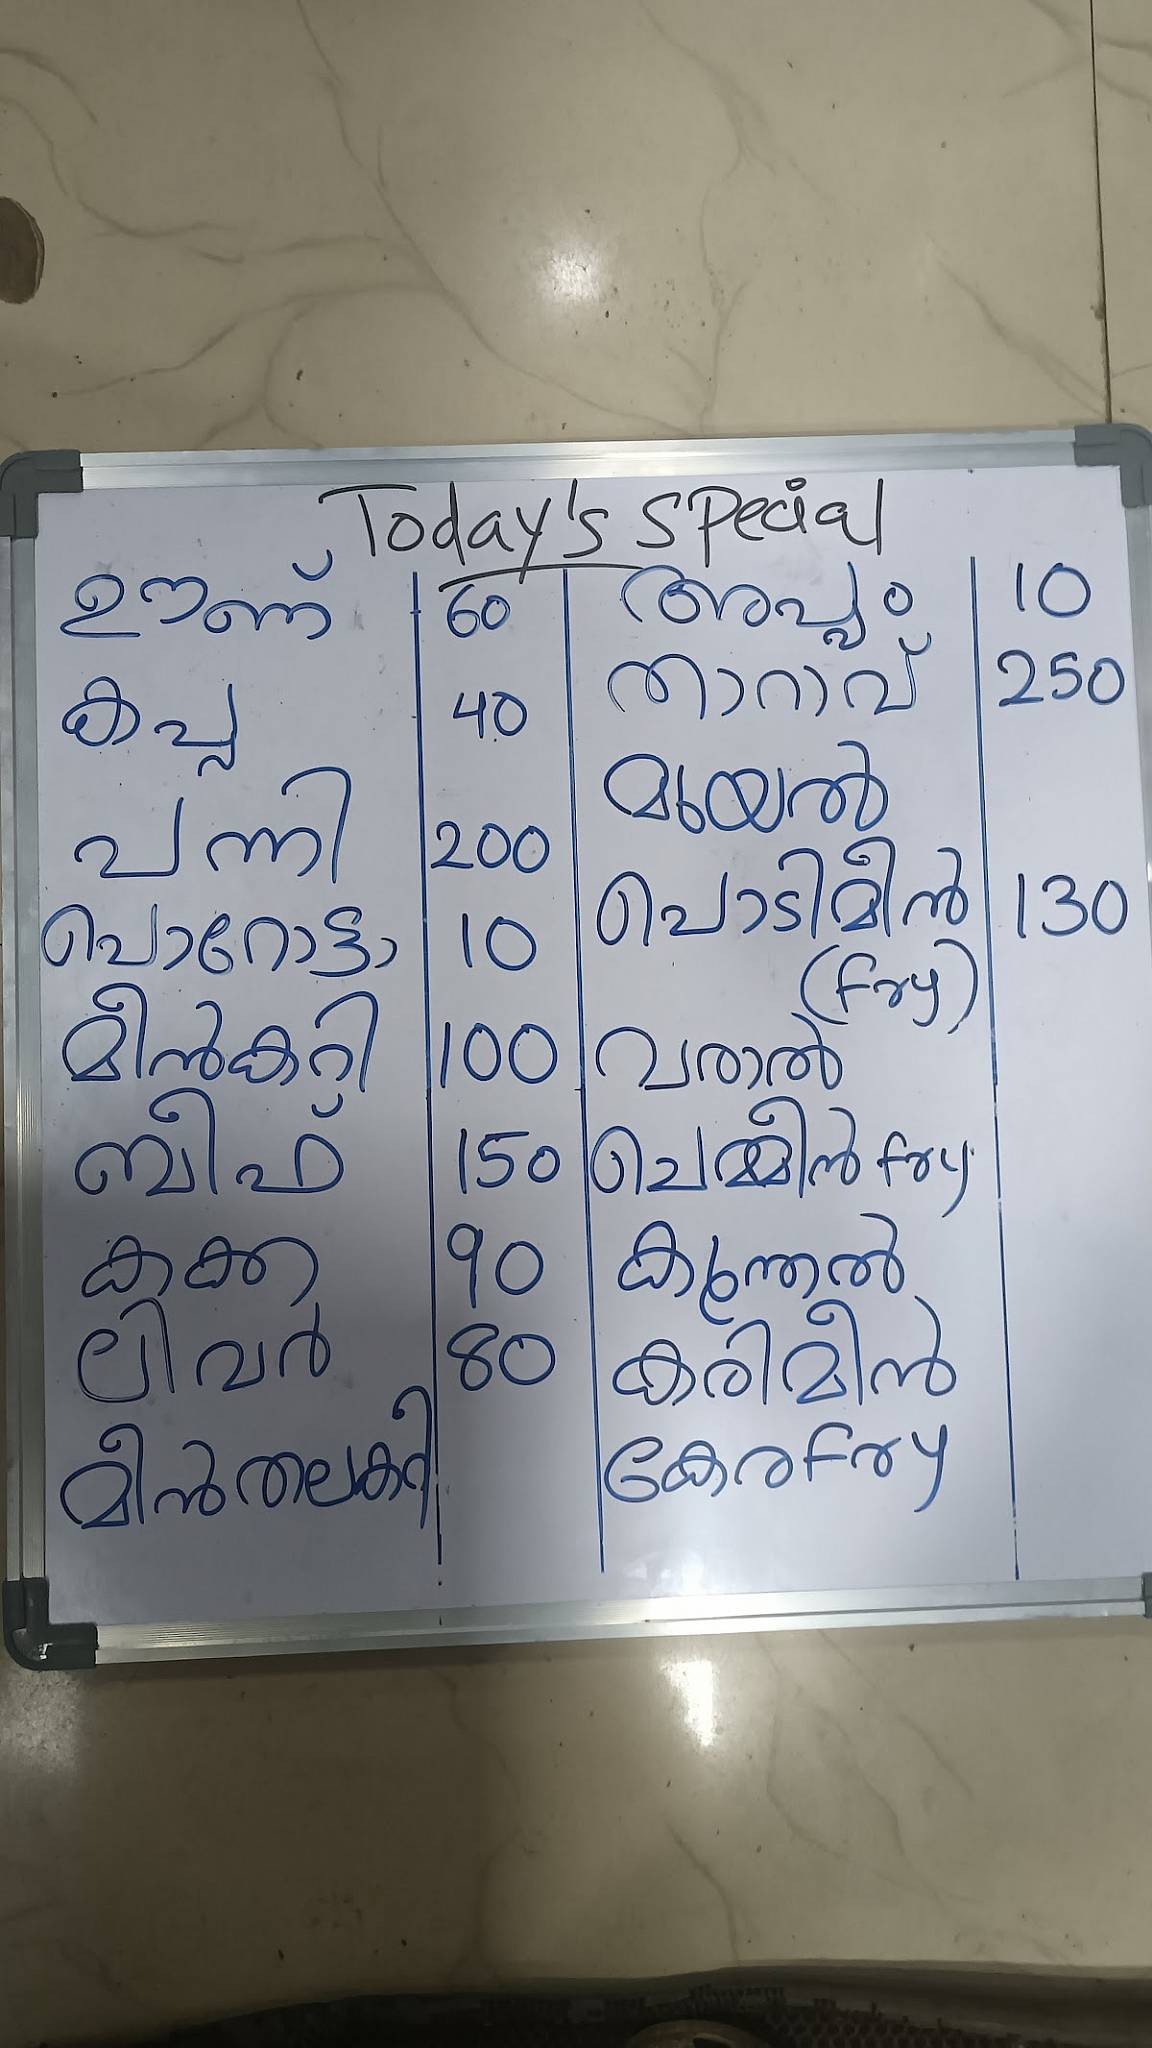 Today's special
ഊണ് 60 അപ്പം 10
കപ്പ 40 താറാവ് 250
മുയൽ
പന്നി 200
പൊടിമീൻ 130
പൊറോട്ടാ 10
(fry)
മീൻകറി 100 വരാൽ
ബീഫ് 150 ചെമ്മീൻ fry
കക്ക 90 കൂന്തൽ
ലിവർ 80 കരിമീൻ
മീൻതലകറി കേര fry